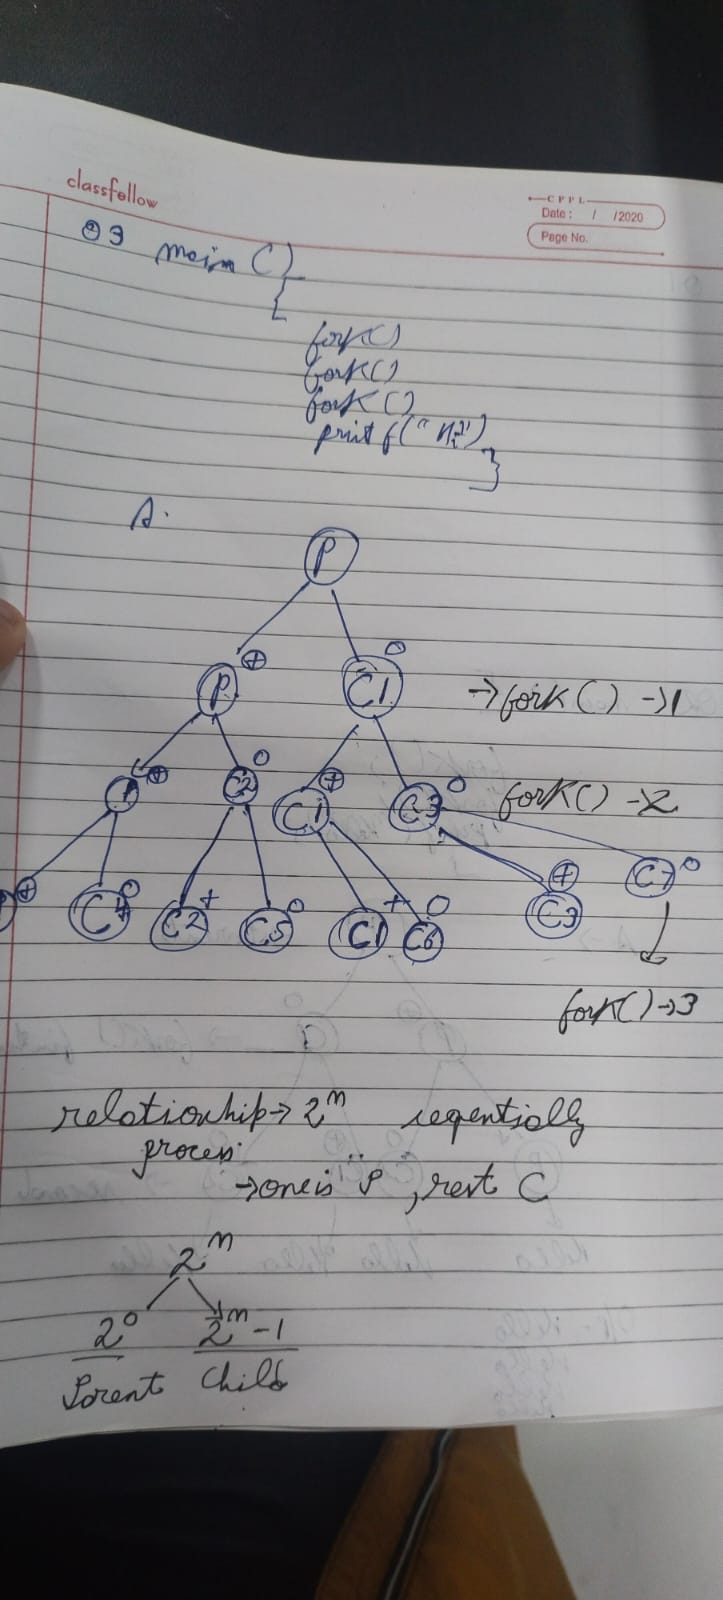 classfellow
CPPL
Date : / /2020
Page No.
Q3 main ()
{
fork()
fork()
fork()
printf("Hi")
}
A.
P
P + C1 0 → fork() → 1
P + C2 0 C1 + C3 0 fork() → 2
+ C4 0 C2 + C5 0 C1 + C6 0 C3 + C7 0
fork() → 3
relationship → 2^n seqentially
process
→ one is "P", rest C
2^n
2^0 2^n - 1
Parent Child